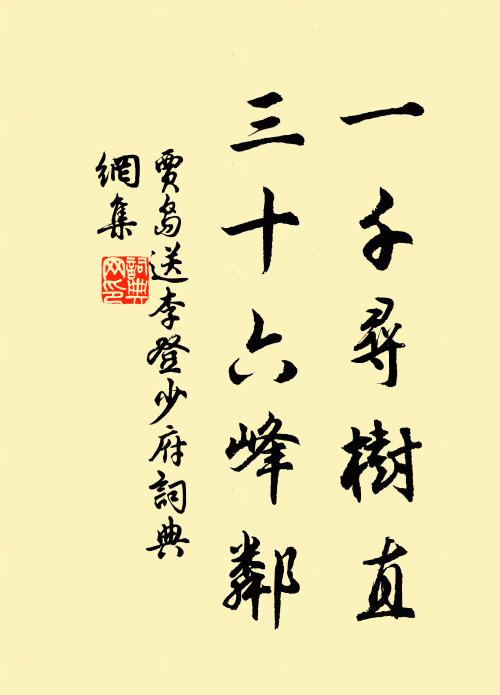 一千尋樹直
三十六峰鄰
賈島送李登少府詞典
網集
詞典
网印